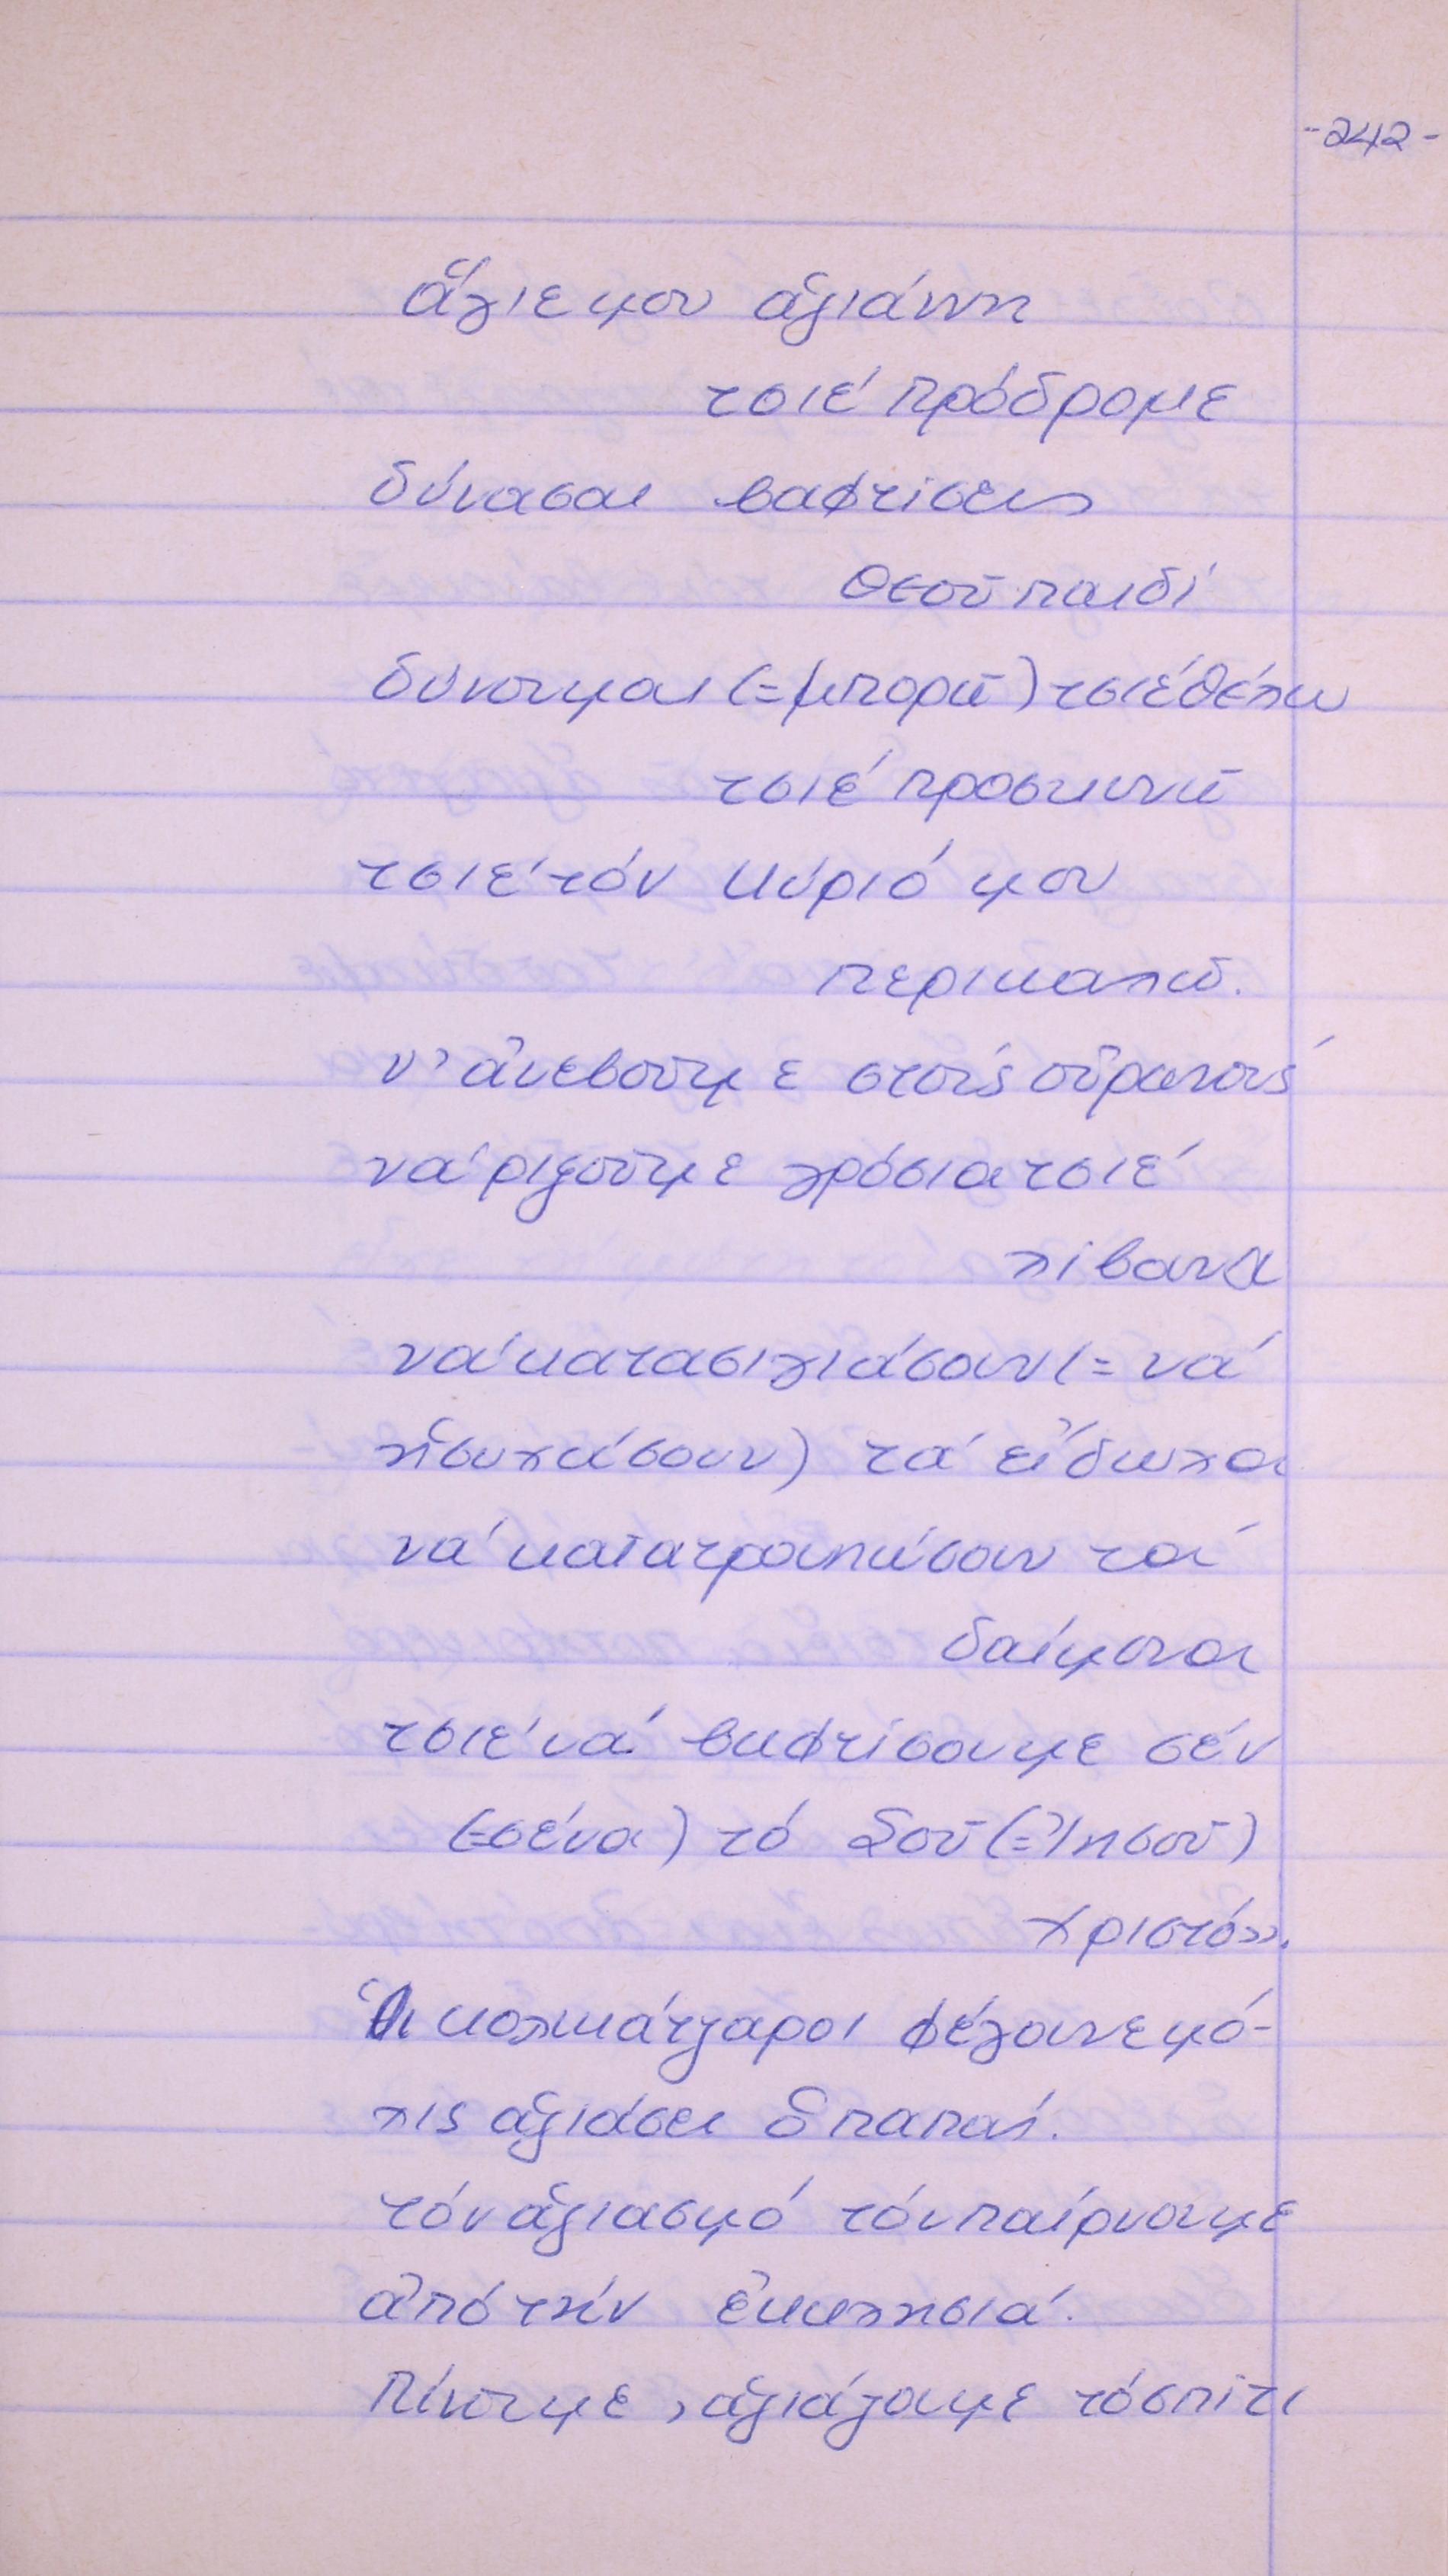 -242-
ἅγιε μου ἁγιάννη
τσιέ πρόδρομε
δύνασαι βαφτίσεις
Θεοῦ παιδί
δύνουμαι (=μπορῶ) τσιέ θέλω
τσιέ προσκυνῶ
τσιέ τόν κύριό μου
περικαλῶ.
ν' ἀνεβοῦμε στούς οὐρανούς
νά ριξοῦμε γρόσια τσιέ
λίβανα
νά κατασιγιάσουν (= νά
ἡσυχάσουν) τά εἴδωλα
νά κατατροπώσουν τά
δαίμονα
τσιέ νά βαφτίσουμε σέν
(=σένα) τό Σοῦ (=Ἰησοῦ)
Χριστό».
Οἱ κολικάτζαροι φέγουνε μό-
λις ἁγιάσει ὁ παπάς.
τόν ἁγιασμό τόν παίρνουμε
ἀπό τήν ἐκκλησιά.
Πίνουμε, ἁγιάζουμε τό σπίτι